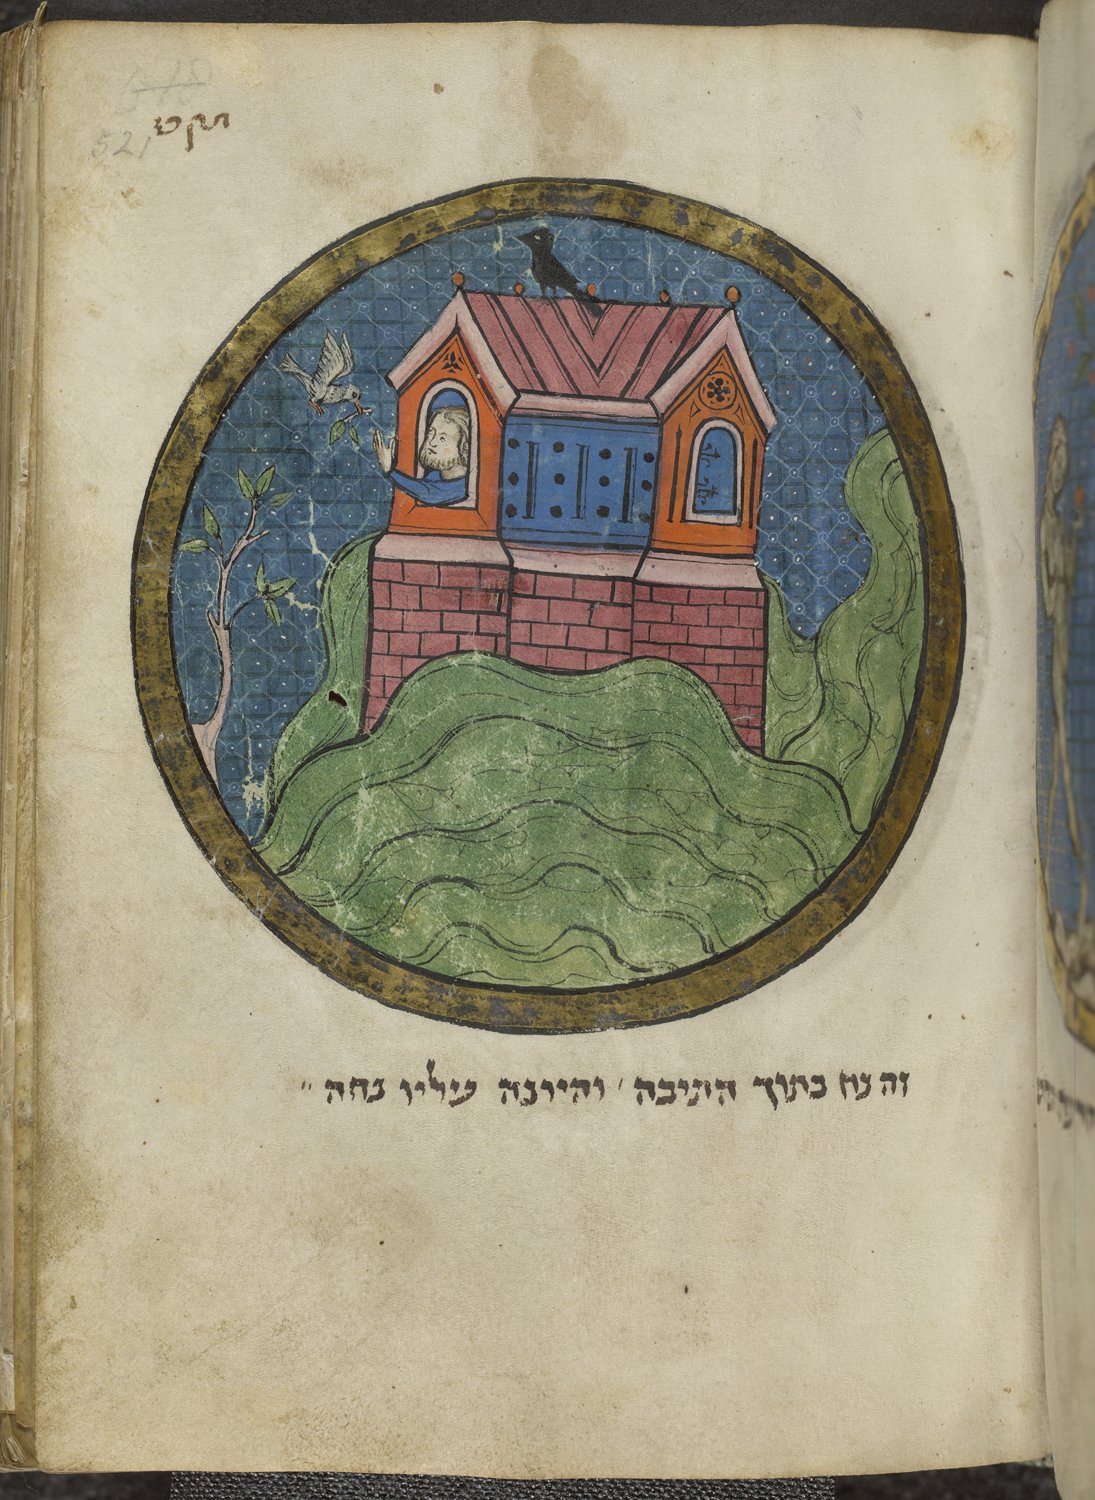 521
זה נח בתוך התיבה׳ והיונה עליו נחה״